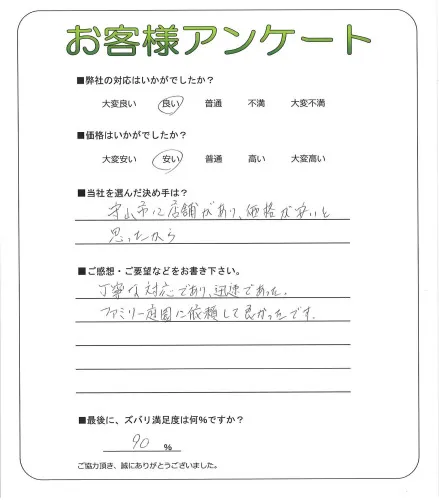 お客様アンケート
■弊社の対応はいかがでしたか？
大変良い 良い 普通 不満 大変不満
■価格はいかがでしたか？
大変安い 安い 普通 高い 大変高い
■当社を選んだ決め手は？
守山市に店舗があり、価格が安いと
思ったから
■ご感想・ご要望などをお書き下さい。
丁寧な対応であり、迅速であった。
ファミリー庭園に依頼して良かったです。
■最後に、ズバリ満足度は何%ですか？
90 %
ご協力頂き、誠にありがとうございました。